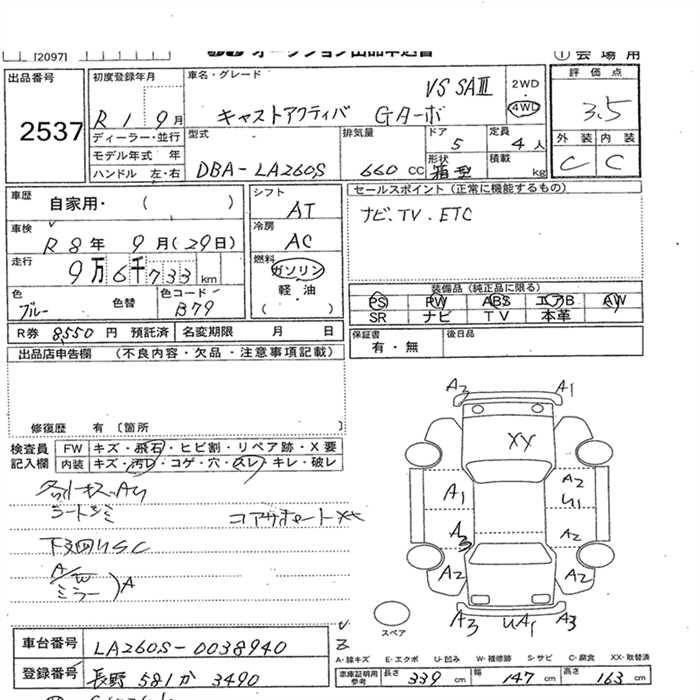 [2097]
オークション出品申込書 ① 会場用
出品番号 2537
初度登録年月 R1 9月
ディーラー・並行
モデル年式 年
ハンドル 左・右
車名・グレード VS SAⅢ
キャストアクティバ Gターボ
2WD
4WD
評価点 3.5
外装 内装
C C
型式 DBA-LA260S
排気量 660 cc
ドア 5
定員 4人
形状 箱型
積載 kg
車歴 自家用・( )
車検 R8年 9月(29日)
走行 9万6千733 km
色 ブルー 色替 色コード B79
シフト AT
冷房 AC
燃料 ガソリン
軽・油
( )
セールスポイント(正常に機能するもの)
ナビ.TV.ETC
装備品(純正品に限る)
PS PW ABS エアB AW
SR ナビ TV 本革
R券 8,550円 預託済 名変期限 月 日
保証書 有・無
後日品
出品店申告欄 (不良内容・欠品・注意事項記載)
修復歴 有〔箇所 〕
検査員記入欄
FW キズ・飛石・ヒビ割・リペア跡・X要
内装 キズ・汚レ・コゲ・穴・スレ・キレ・破レ
コアサポートXX
下廻りSC
A/W
ミラー )A
A3 A1
XY
A1 A2
U1
A3 A2
A2 A2
A3 UA1 A3
スペア
車台番号 LA260S-0038940
登録番号 長野 581 か 3490
A-線キズ E-エクボ U-凹み W-補修跡 S-サビ C-腐食 XX-取替済
車庫証明用参考 長さ 339 cm 幅 147 cm 高さ 163 cm